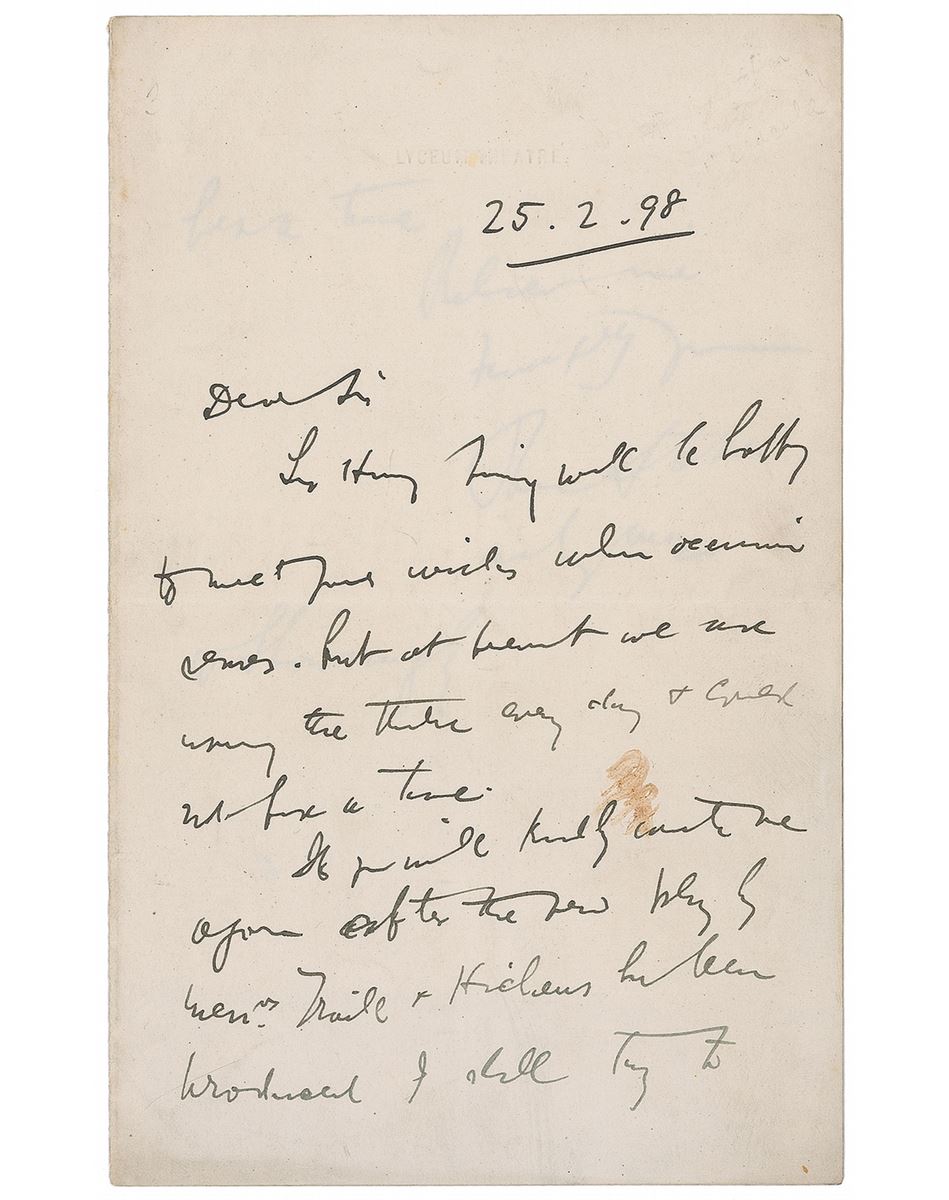 LYCEUM THEATRE.
25.2.98
Dear Sir
Sir Henry Irving will be happy
to meet your wishes when occasion
serves. but at present we are
using the theatre every day & could
not fix a time.
If you will kindly write me
again after the new play by
Messrs. Traill & Hichens has been
produced I shall try to
fix a time
Believe me